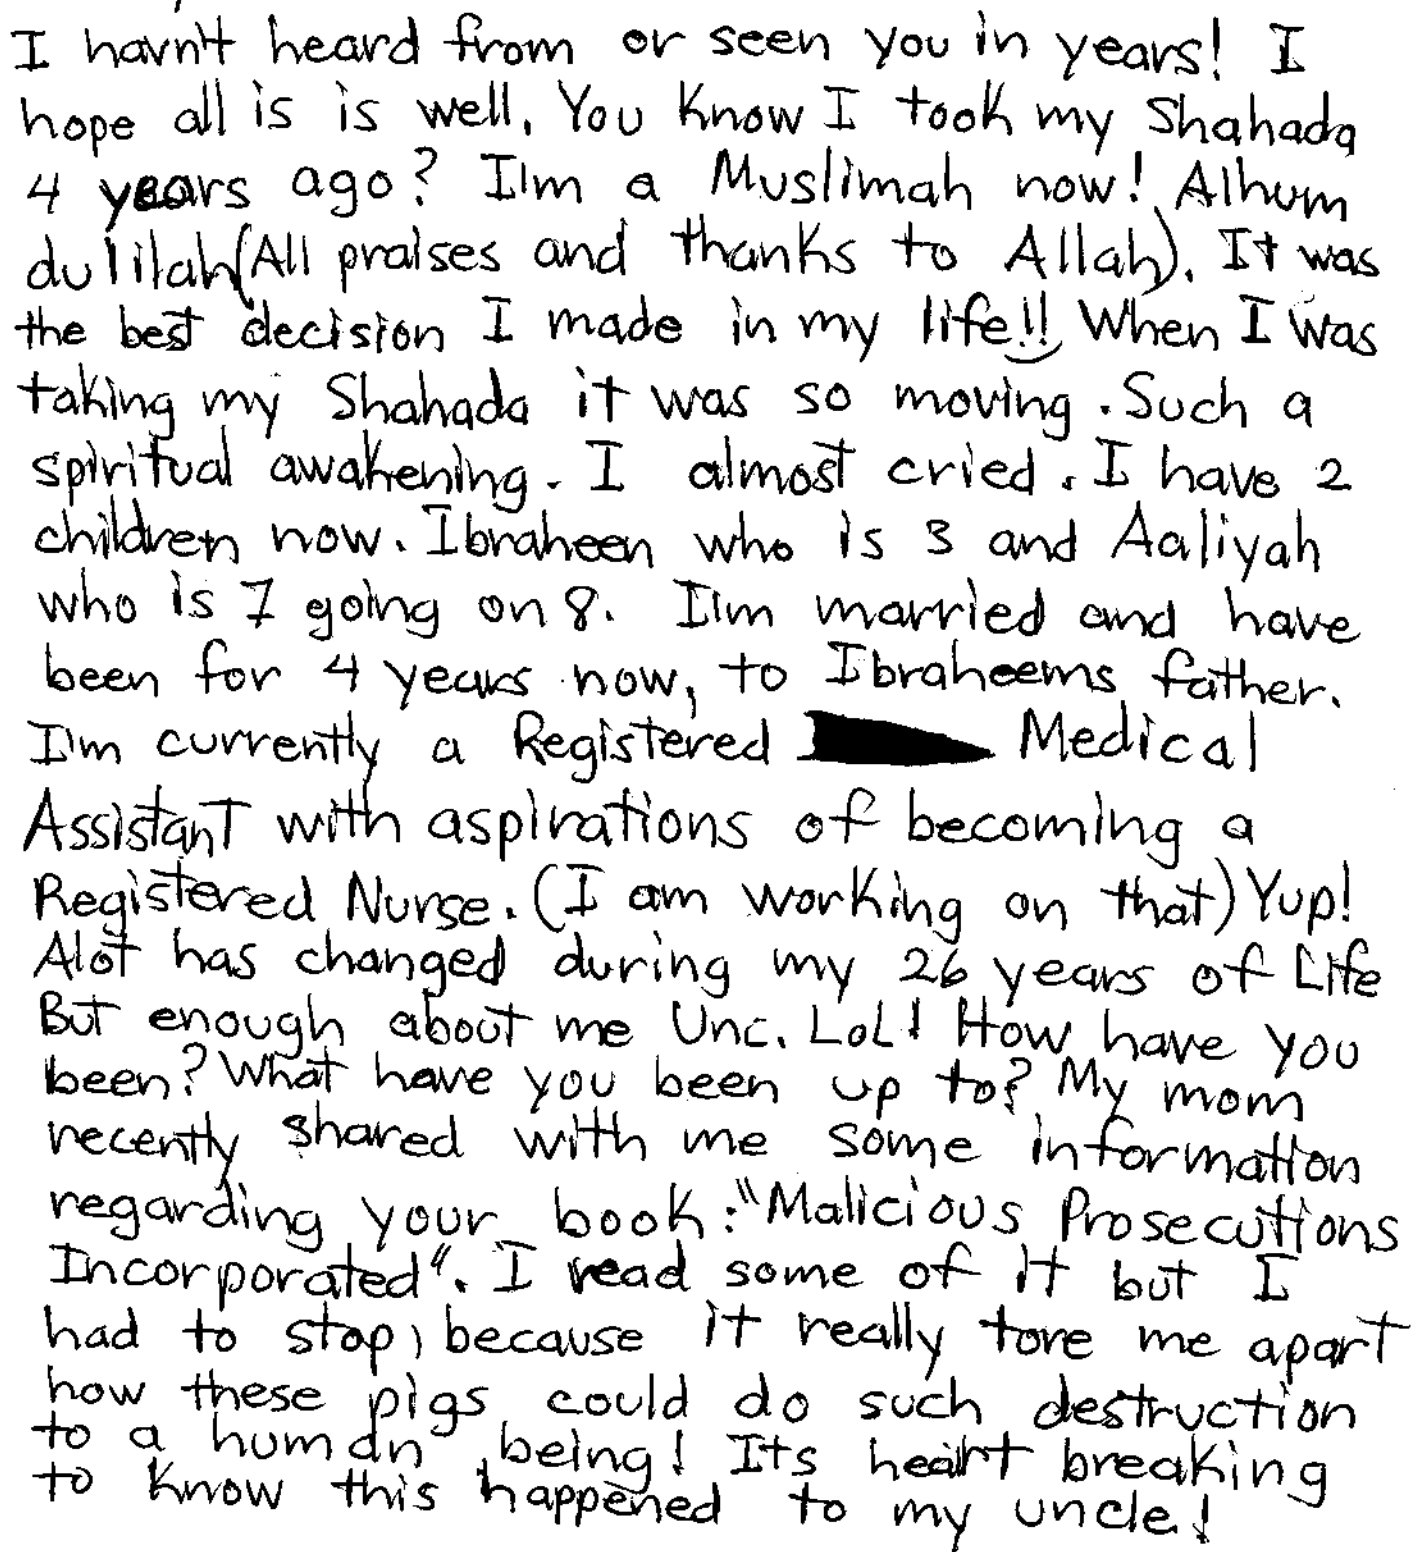 I havn't heard from or seen you in years! I
hope all is is well. You know I took my Shahada
4 years ago? I'm a Muslimah now! Alhum
dulilah (All praises and thanks to Allah). It was
the best decision I made in my life!! When I was
taking my Shahada it was so moving. Such a
spiritual awakening. I almost cried. I have 2
children now. Ibraheen who is 3 and Aaliyah
who is 7 going on 8. I'm married and have
been for 4 years now, to Ibraheems father.
I'm currently a Registered Medical
Assistant with aspirations of becoming a
Registered Nurse. (I am working on that) Yup!
Alot has changed during my 26 years of Life
But enough about me Unc. LoL! How have you
been? What have you been up to? My mom
recently shared with me some information
regarding your book: "Malicious Prosecutions
Incorporated". I read some of it but I
had to stop, because it really tore me apart
how these pigs could do such destruction
to a human being! Its heart breaking
to know this happened to my uncle!